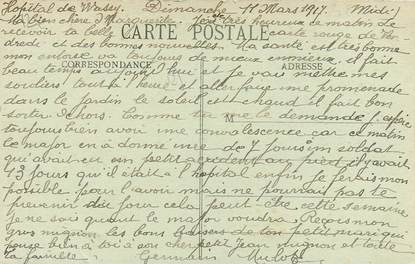 Hopital de Wassy. Dimanche 11 Mars 1917. Midi
Ma bien chère Marguerite. Je très heureux ce matin de
recevoir ta belle carte rouge de
CARTE POSTALE
et des bonnes nouvelles. Ma santé est très bonne
mon entorse va toujours de mieux en mieux, il fait
beau temps aujourd'hui et je vais mettre mes
CORRESPONDANCE ADRESSE
souliers tout à l'heure et aller faire une promenade
dans le jardin le soleil est chaud il fait bon
sortir dehors. Comme tu me le demande j'espère
M
toujours bien avoir une convalescence car ce matin
le major en a donné une de 7 jours un soldat
qui avait eu un petit accident au pied il y avait
43 jours qu'il était à l'hopital enfin je ferais mon
possible pour l'avoir mais ne pourrais pas te
prévenir jour cela peut être cette semaine
je ne sais quand le major voudra. Reçois mon
gros mignon les bons baisers de ton petit mari qui
pense bien à toi à son cher petit Jean mignon et toute
la famille. Germain